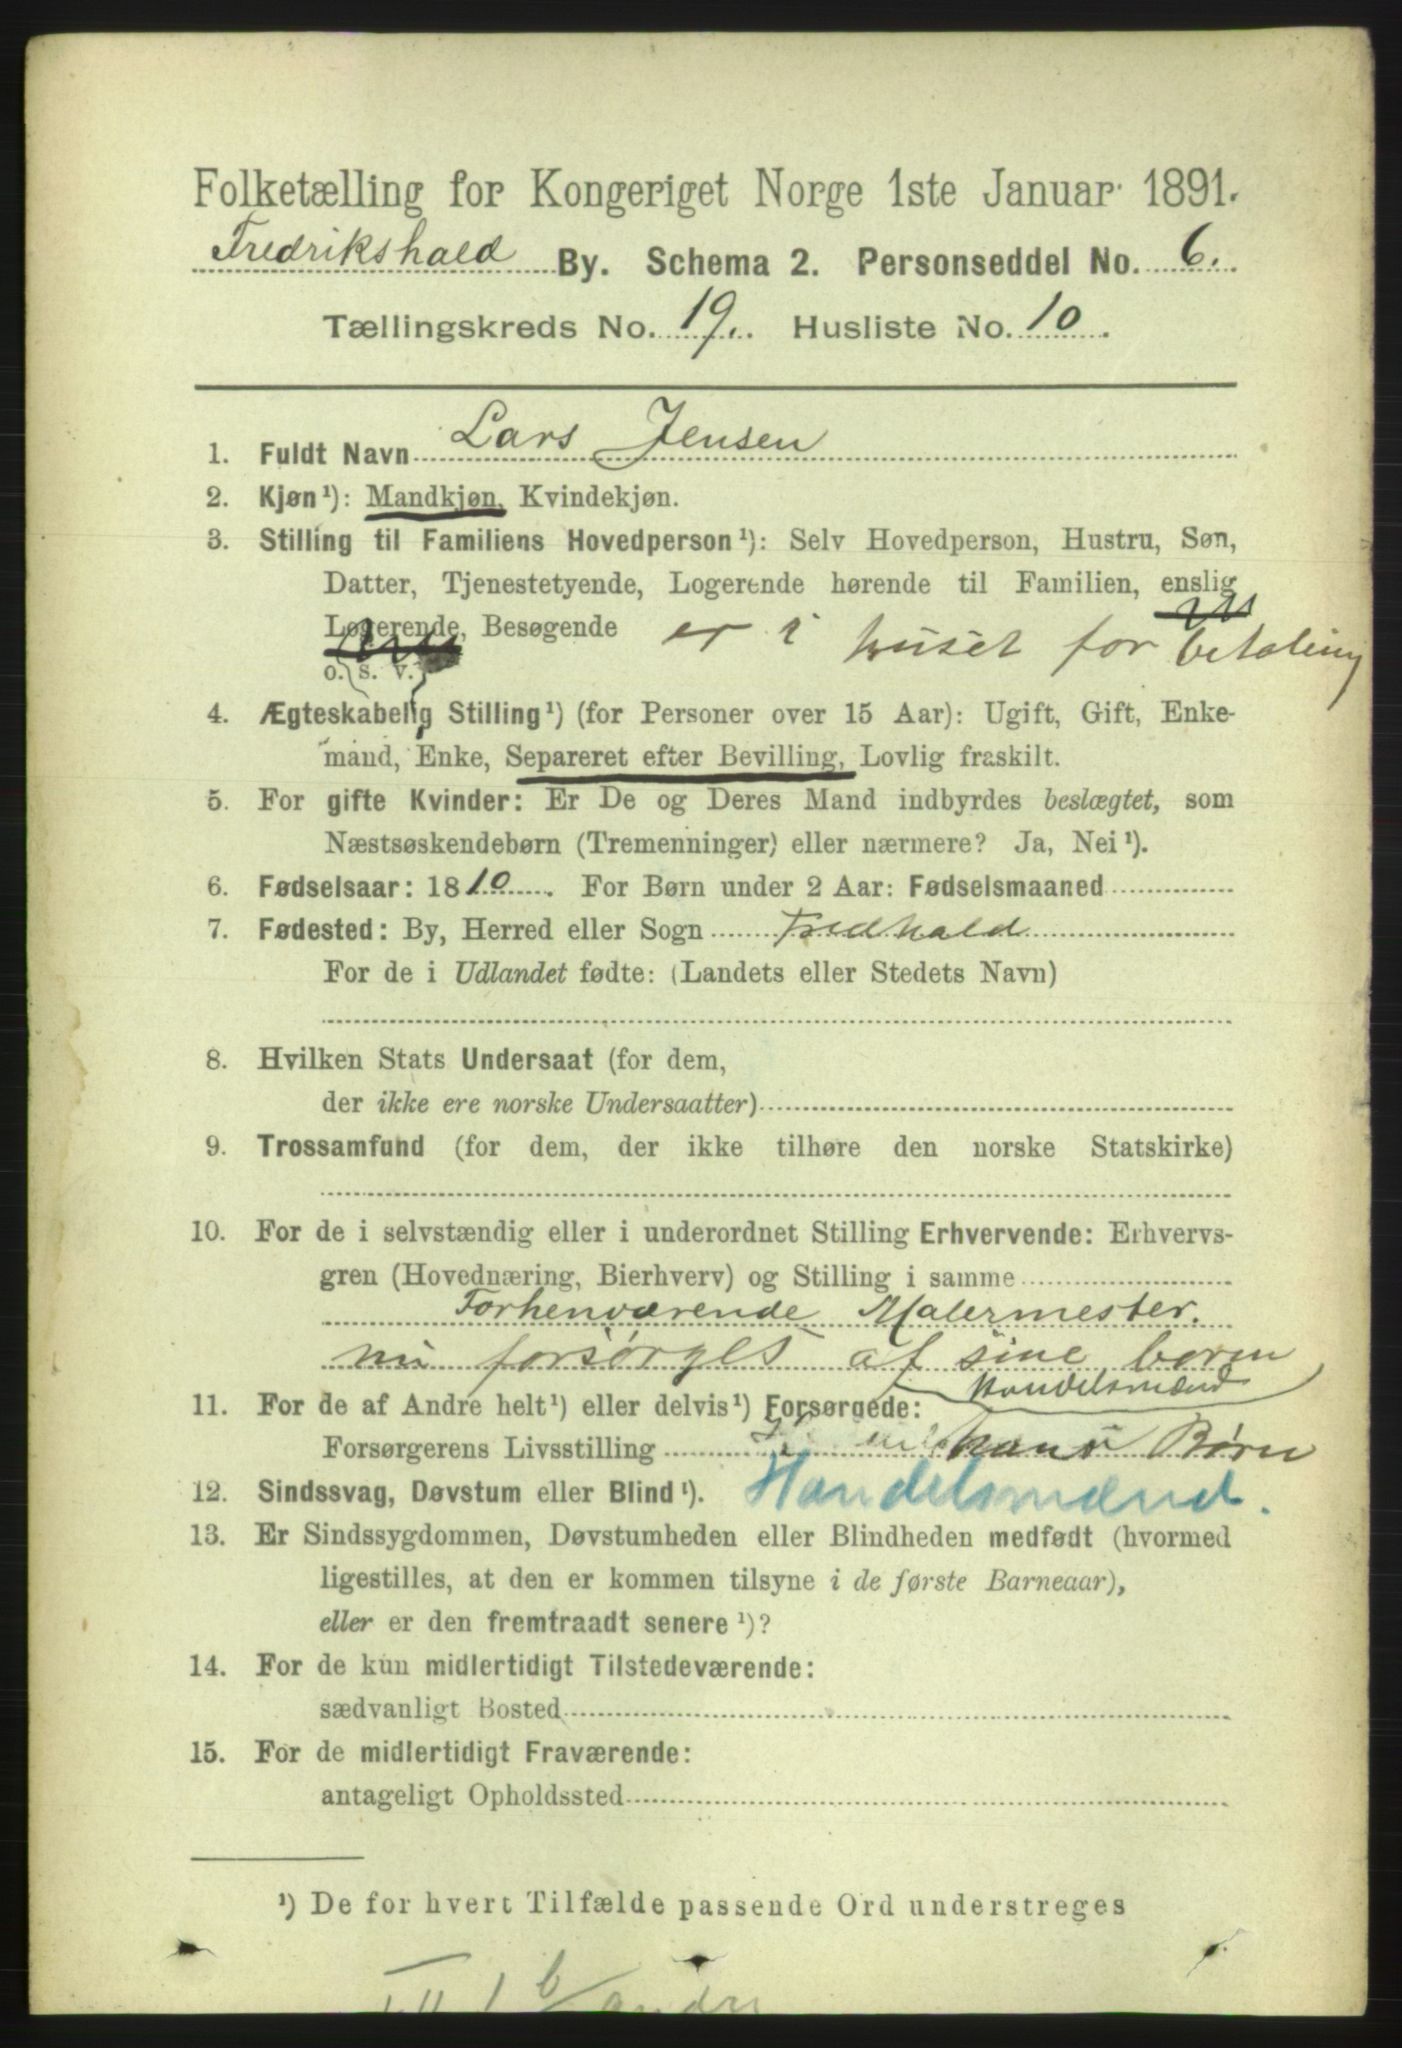 Folketælling for Kongeriget Norge 1ste Januar 1891.
Fredrikshald By. Schema 2. Personseddel No. 6.
Tællingskreds No. 19. Husliste No. 10.
1. Fuldt Navn Lars Jensen
2. Kjøn¹): Mandkjøn, Kvindekjøn.
3. Stilling til Familiens Hovedperson¹): Selv Hovedperson, Hustru, Søn,
Datter, Tjenestetyende, Logerende hørende til Familien, enslig
Logerende, Besøgende er i huset for betaling
o. s. v.
4. Ægteskabelig Stilling¹) (for Personer over 15 Aar): Ugift, Gift, Enke-
mand, Enke, Separeret efter Bevilling, Lovlig fraskilt.
5. For gifte Kvinder: Er De og Deres Mand indbyrdes beslægtet, som
Næstsøskendebørn (Tremenninger) eller nærmere? Ja, Nei¹).
6. Fødselsaar: 1810. For Børn under 2 Aar: Fødselsmaaned
7. Fødested: By, Herred eller Sogn Fredhald
For de i Udlandet fødte: (Landets eller Stedets Navn)
8. Hvilken Stats Undersaat (for dem,
der ikke ere norske Undersaatter)
9. Trossamfund (for dem, der ikke tilhøre den norske Statskirke)
10. For de i selvstændig eller i underordnet Stilling Erhvervende: Erhvervs-
gren (Hovednæring, Bierhverv) og Stilling i samme
Forhenværende Malermester.
nu forsørges af sine børn
Handelsmænd
11. For de af Andre helt¹) eller delvis¹) Forsørgede:
Forsørgerens Livsstilling hans Børn
12. Sindssvag, Døvstum eller Blind¹). Handelsmænd.
13. Er Sindssygdommen, Døvstumheden eller Blindheden medfødt (hvormed
ligestilles, at den er kommen tilsyne i de første Barneaar),
eller er den fremtraadt senere¹)?
14. For de kun midlertidigt Tilstedeværende:
sædvanligt Bosted
15. For de midlertidigt Fraværende:
antageligt Opholdssted
¹) De for hvert Tilfælde passende Ord understreges